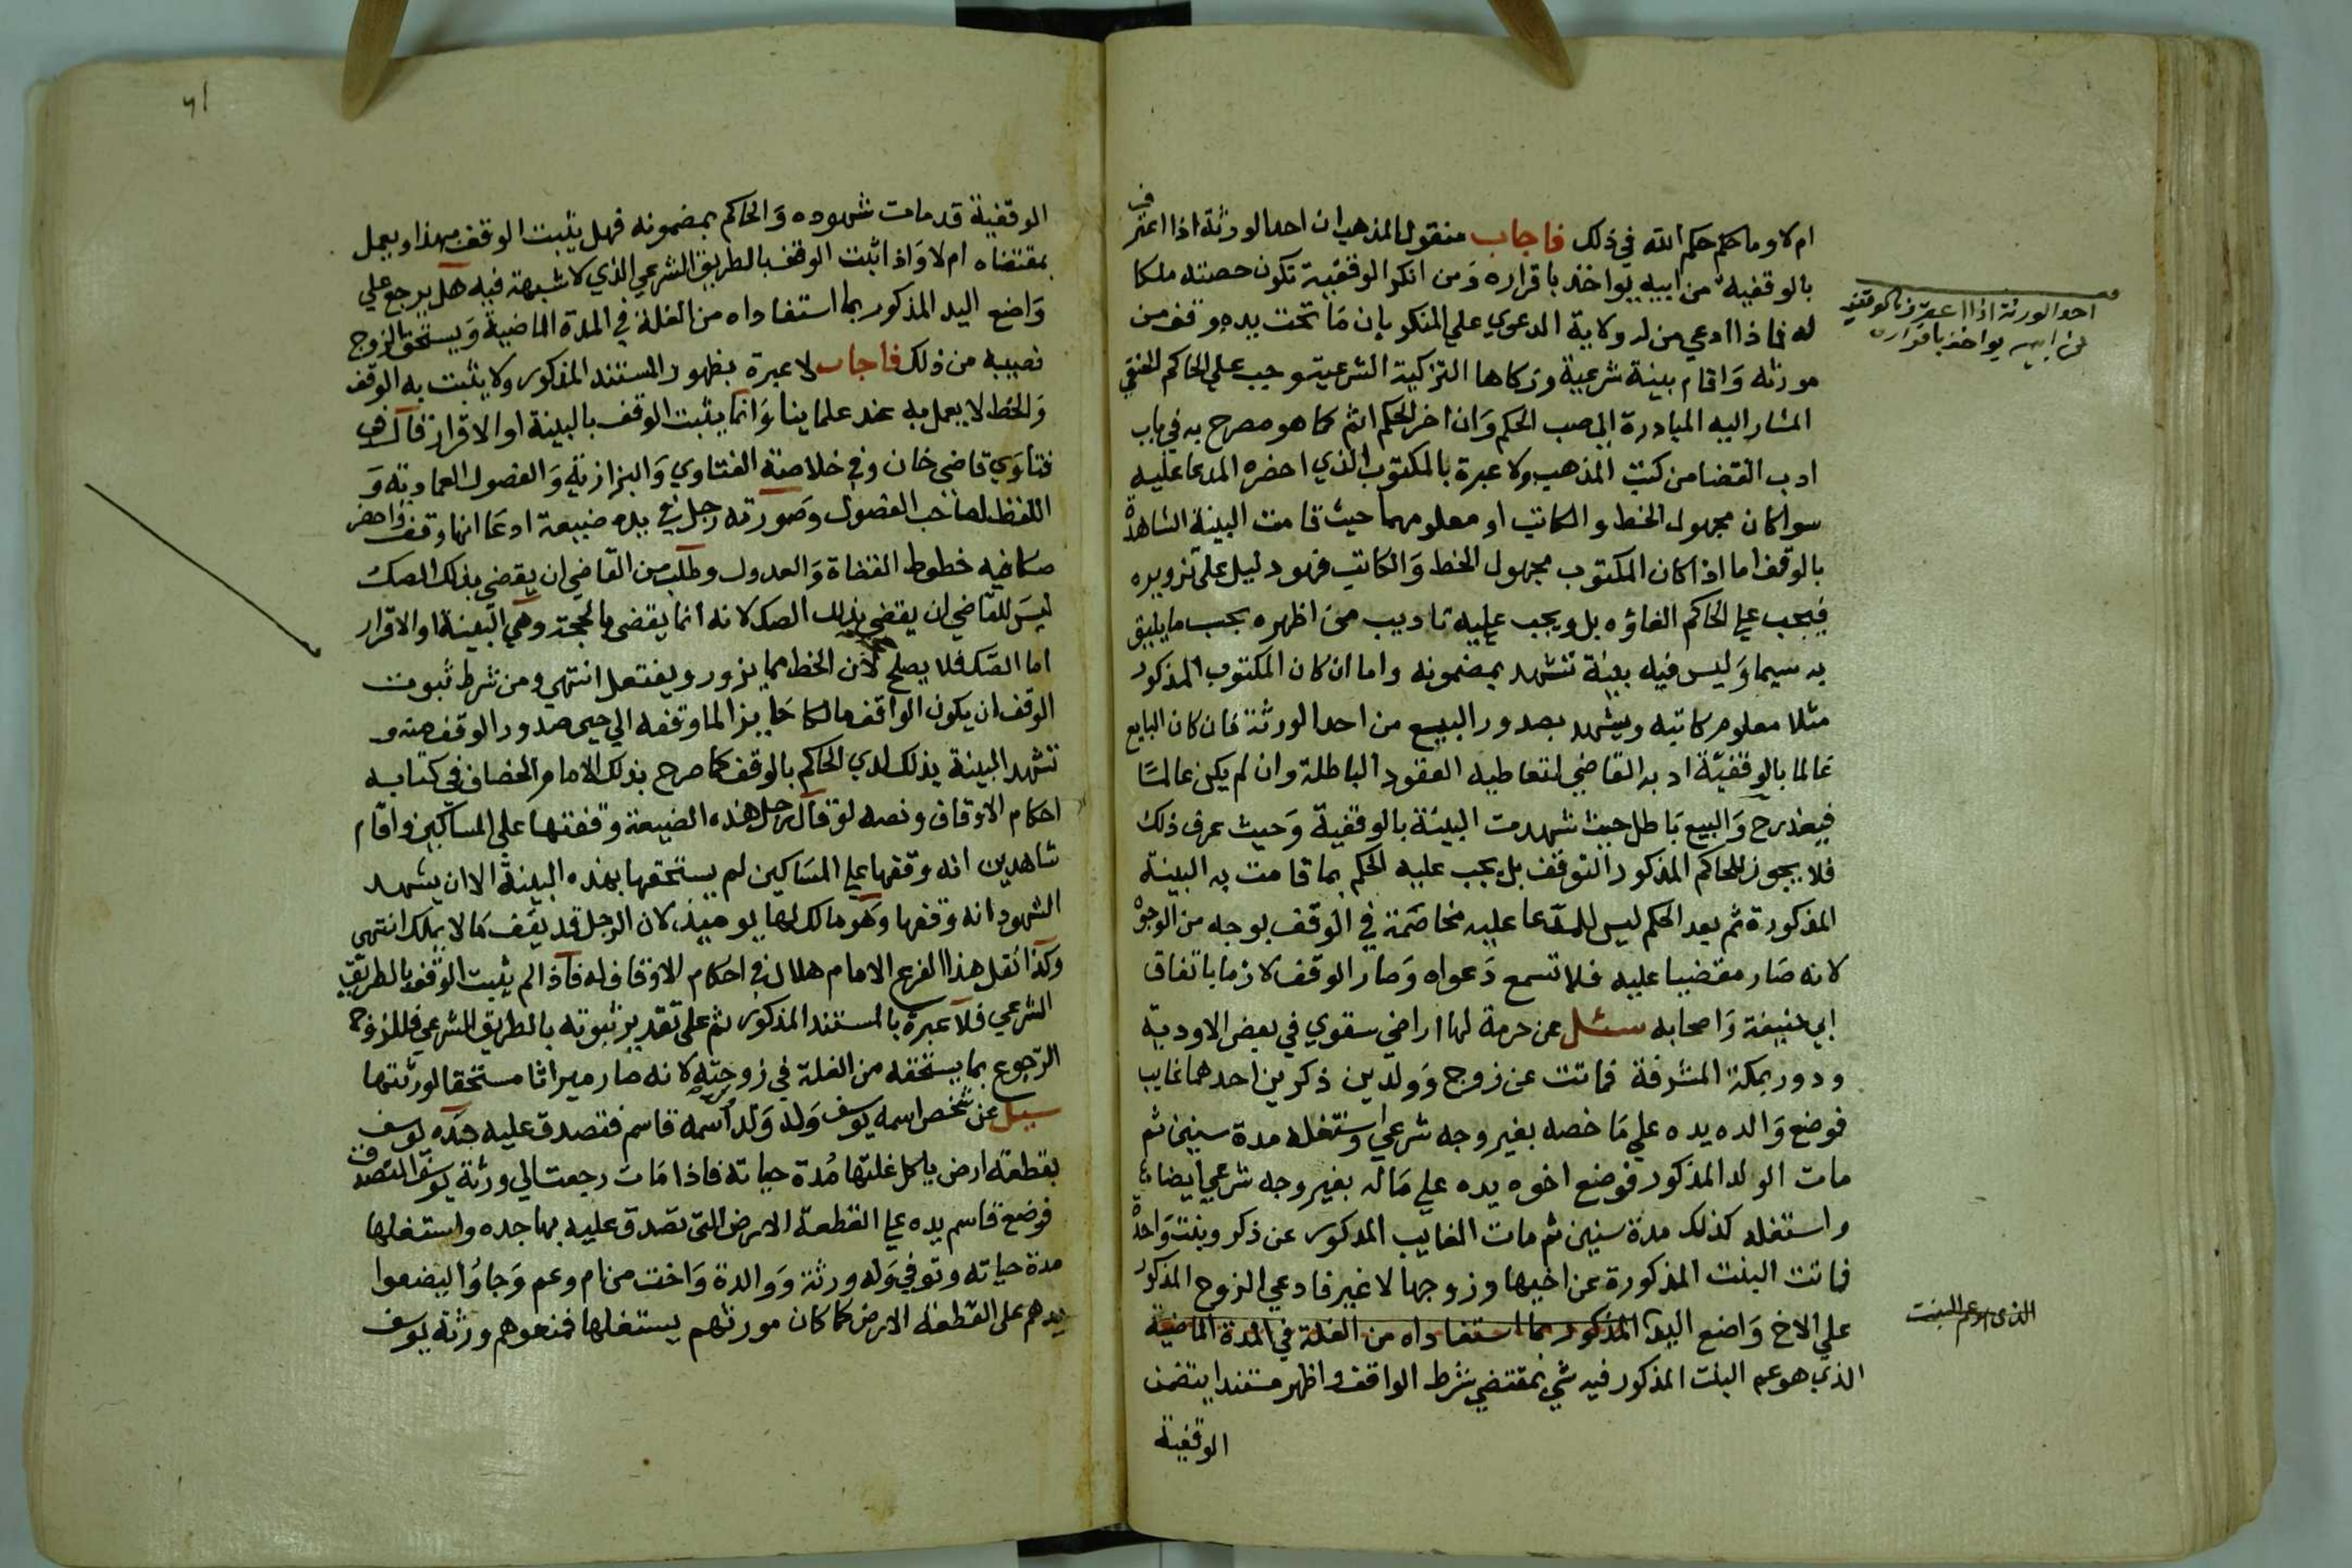 ام لا وما حكم حكم الله في ذلك فاجاب منقول المذهب ان احد الورثة اذا اعترف
بالوقفية من ابيه يواخذ باقراره وَمن انكر الوقفية تكون حصته ملكا
له فاذا ادعي من له ولاية الدعوي علي المنكر بان مَا تحت يده وقف من
مورثه وَاقام بينة شرعية وزكاها التزكية الشرعية وجب علي الحاكم الحنفي
المشار اليه المبادرة الي صب الحكم وَان اخر الحكم اثم كما هو مصرح به في باب
ادب القضا من كتب المذهب ولا عبرة بالمكتوب الذي احضره المدعا عليه
سوا كان مجهول الخط والكاتب او معلومهما حيث قامت البينة الشاهدة
بالوقف اما اذا كان المكتوب مجهول الخط وَالكاتب فهو دليل علي تزويره
فيجب علي الحاكم الغاؤه بل ويجب عليه تاديب من اظهره بحسب ما يليق
به سيما وَليس فيه بينة تشهد بمضمونه واما ان كان المكتوب المذكور
مثلا معلوم كاتبه ويشهد بصدور البيع من احد الورثة فان كان البايع
عَالما بالوقفيّة ادبه القاضي لتعاطيه العقود الباطلة وان لم يكن عالمًا
فيعذر ح وَالبيع بَاطل حيث شهدت البيّنة بالوقفية وَحيث عرف ذلك
فلا يجوز للحاكم المذكور التوقف بل يجب عليه الحكم بما قامت به البينة
المذكورة ثم بعد الحكم ليس للمدّعا عليه مخاصَمة في الوقف بوجه من الوجوه
لانه صَار مقضيا عليه فلا تسمع دَعواه وَصار الوقف لازما باتفاق
ابي حنيفة وَاصحابه سئل عن حرمة لها اراضي سقوي في بعض الاودية
ودور بمكة المشرفة فماتت عن زوج وَولدين ذكرين احدهما غايب
فوضع وَالده يده علي مَا خصه بغير وجه شرعي واستغله مدة سنين ثم
مات الولد المذكور فوضع اخوه يده علي مَاله بغير وجه شرعي ايضا
واستغله كذلك مدة سنين ثم مات الغايب المذكور عن ذكر وبنت وَاحدة
فماتت البنت المذكورة عن اخيها وزوجها لا غير فادعي الزوج المذكور
علي الاخ وَاضع اليد المذكور بما استفاداه من الغلة في المدة الماضية
الذي هو عم البنت المذكور فيه شي بمقتضي شرط الواقف واظهر مستندا يتضمن
الوقفية
احد الورثة اذا اعترف بالوقفية
من ابيه يواخذ باقراره
الذي هو عم البنت
الوقفية قد مات شهوده وَالحاكم بمضمونه فهل يثبت الوقف بهذا ويعمل
بمقتضاه ام لا وَاذا ثبت الوقف بالطريق الشرعي الذي لا شبهة فيه هل يرجع علي
وَاضع اليد المذكور بما استفاداه من الغلة في المدة الماضية وَيستحق الزوج
نصيبه من ذلك فاجاب لا عبرة بظهور المستند المذكور ولا يثبت به الوقف
وَالخط لا يعمل به عند علماينا وَانما يثبت الوقف بالبينة او الاقرار قال في
فتاوَي قاضي خان وفي خلاصة الفتاوي وَالبزازية وَالفصول العمادية وَ
اللفظ لصاحب الفصول وصَورته رجل في يده ضيعة ادعَا انها وقف واحضر
صكا فيه خطوط القضاة وَالعدول وطلب من القاضي ان يقضي بذلك الصك
ليسَ للقاضي ان يقضي بذلك الصك لانه انما يقضي بالحجة وهي البينة او الاقرار
اما الصّك فلا يصلح لان الخط مما يزور ويفتعل انتهي ومن شرط ثبوت
الوقف ان يكون الواقف مالكا حَايزا لما وقفه الي حين صدور الوقف منه و
تشهد البينة بذلك لدي الحاكم بالوقف كما صرح بذلك الامام الخصاف في كتابه
احكام الاوقاف ونصه لو قال رجل هذه الضيعة وقفتها علي المساكين واقام
شاهدين انه وقفها علي المسَاكين لم يستحقها بهذه البينة الا ان يشهد
الشهود انه وقفها وَهو مالك لها يوميذ لان الرجل قد يقف مَا لا يملك انتهي
وكذا نقل هذا الفرع الامام هلال في احكام الاوقاف له فاذا لم يثبت الوقف بالطريق
الشرعي فلا عبرة بالمستند المذكور ثم علي تقدير ثبوته بالطريق الشرعي فللزوج
الرّجوع بما يستحقه من الغلة في زوجته لانه صَار ميراثا مستحقا لورثتها
سيل عن شخص اسمه يوسف وَلد وَلد اسمه قاسم فتصدق عليه جَده يوسف
بقطعة ارض ياكل غلتها مُدة حياته فاذا مَات رجعت الي ورثة يوسف المتصدق
فوضع قاسم يده علي القطعة الارض التي تصدق عليه بها جده واستغلها
مدة حياته وتوفي وَله ورثة وَوالدة وَاخت من ام وعم وَجاوُا ليضعوا
يدهم علي القطعة الارض كما كان مورثهم يستغلها فمنعوهم ورثة يوسف